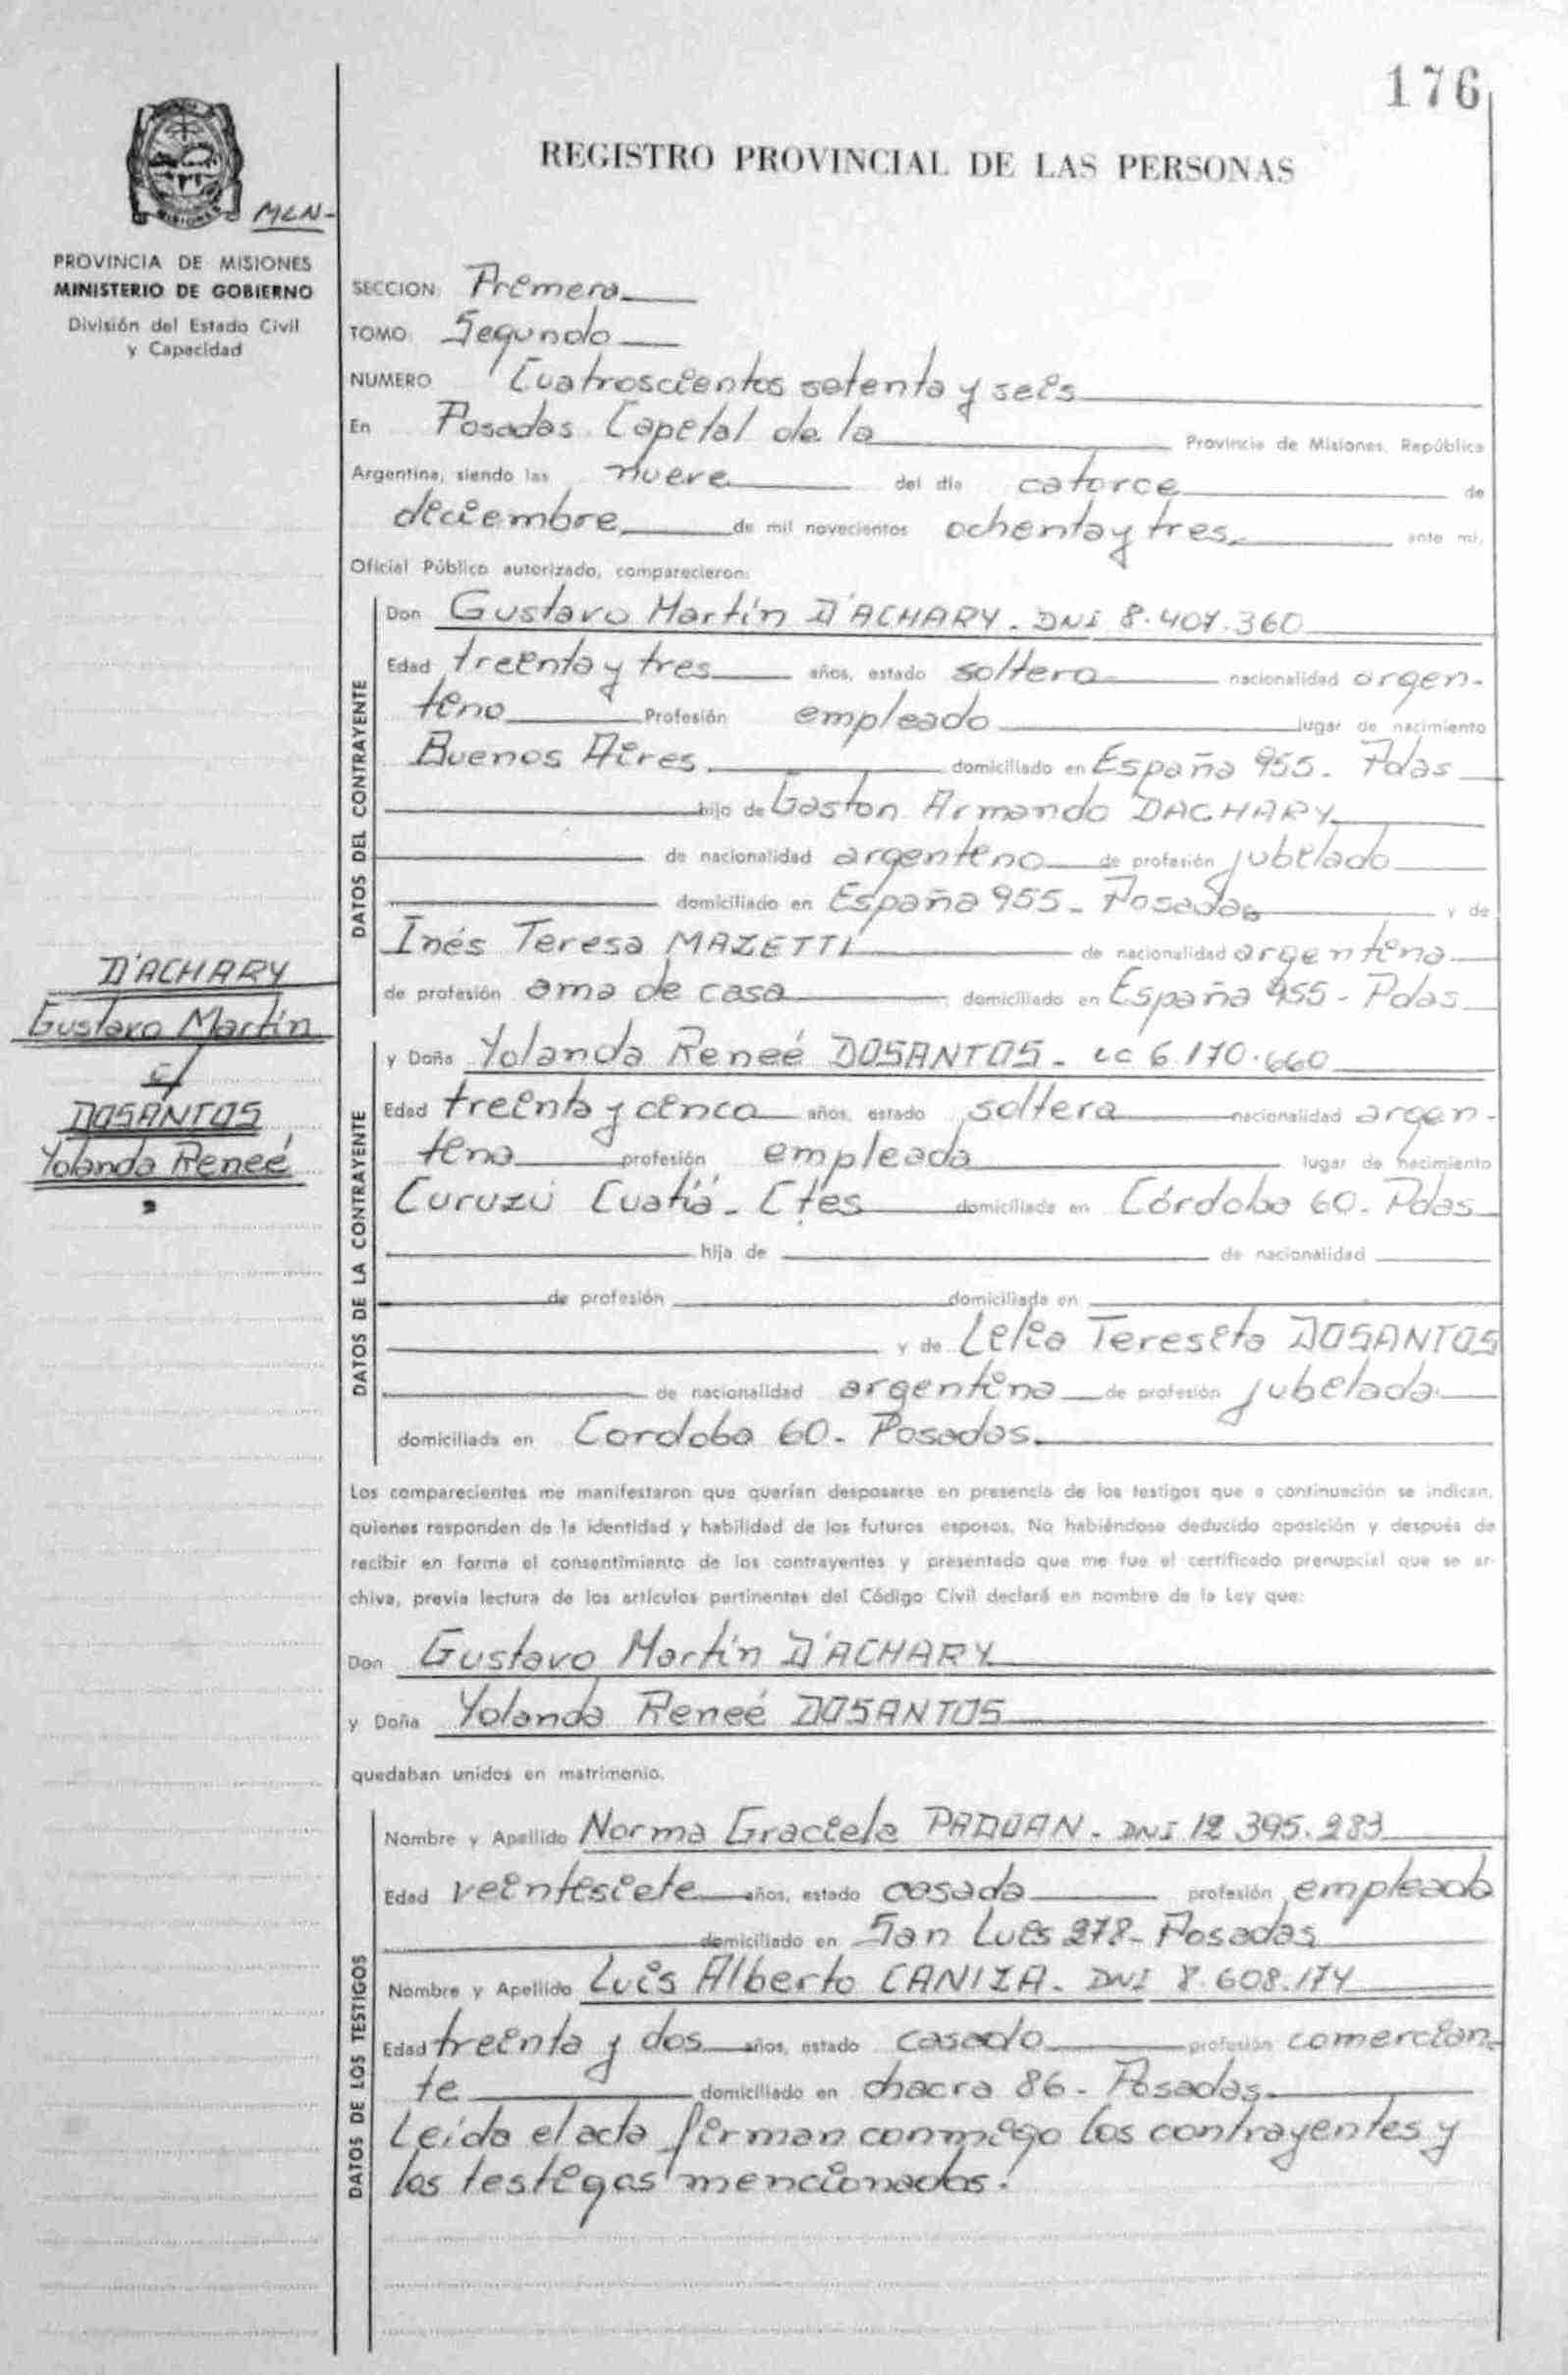 176
REGISTRO PROVINCIAL DE LAS PERSONAS
MISIONES
MLN-
PROVINCIA DE MISIONES
MINISTERIO DE GOBIERNO
División del Estado Civil
y Capacidad
SECCION: Primera
TOMO: Segundo
NUMERO Cuatroscientos setenta y seis
En Posadas Capital de la Provincia de Misiones, República
Argentina, siendo las nueve del día catorce de
diciembre de mil novecientos ochenta y tres ante mí,
Oficial Público autorizado, comparecieron:
DATOS DEL CONTRAYENTE
Don Gustavo Martín D'ACHARY - DNI 8.407.360
Edad treinta y tres años, estado soltero nacionalidad argen-
tino Profesión empleado lugar de nacimiento
Buenos Aires domiciliado en España 955 - Pdas
hijo de Gaston Armando DACHARY
de nacionalidad argentino de profesión jubilado
domiciliado en España 955 - Posadas y de
Inés Teresa MAZETTI de nacionalidad argentina
de profesión ama de casa domiciliado en España 955 - Pdas
D'ACHARY
Gustavo Martín
c/
DOSANTOS
Yolanda Reneé
DATOS DE LA CONTRAYENTE
y Doña Yolanda Reneé DOSANTOS - LC 6.170.660
Edad treinta y cinco años, estado soltera nacionalidad argen-
tina profesión empleada lugar de nacimiento
Curuzú Cuatiá - Ctes domiciliada en Córdoba 60 - Pdas
hija de de nacionalidad
de profesión domiciliado en
y de Lelia Teresita DOSANTOS
de nacionalidad argentina de profesión jubilada
domiciliada en Cordoba 60 - Posadas
Los comparecientes me manifestaron que querían desposarse en presencia de los testigos que a continuación se indican,
quienes responden de la identidad y habilidad de los futuros esposos. No habiéndose deducido oposición y después de
recibir en forma el consentimiento de los contrayentes y presentado que me fue el certificado prenupcial que se ar-
chiva, previa lectura de los artículos pertinentes del Código Civil declaré en nombre de la Ley que:
Don Gustavo Martín D'ACHARY
y Doña Yolanda Reneé DOSANTOS
quedaban unidos en matrimonio.
DATOS DE LOS TESTIGOS
Nombre y Apellido Norma Graciela PADUAN - DNI 12.395.283
Edad veintisiete años, estado casada profesión empleada
domiciliado en San Luis 278 - Posadas
Nombre y Apellido Luis Alberto CANIZA - DNI 8.608.174
Edad treinta y dos años, estado casado profesión comercian-
te domiciliado en chacra 86 - Posadas
Leída el acta firman conmigo los contrayentes y
los testigos mencionados.